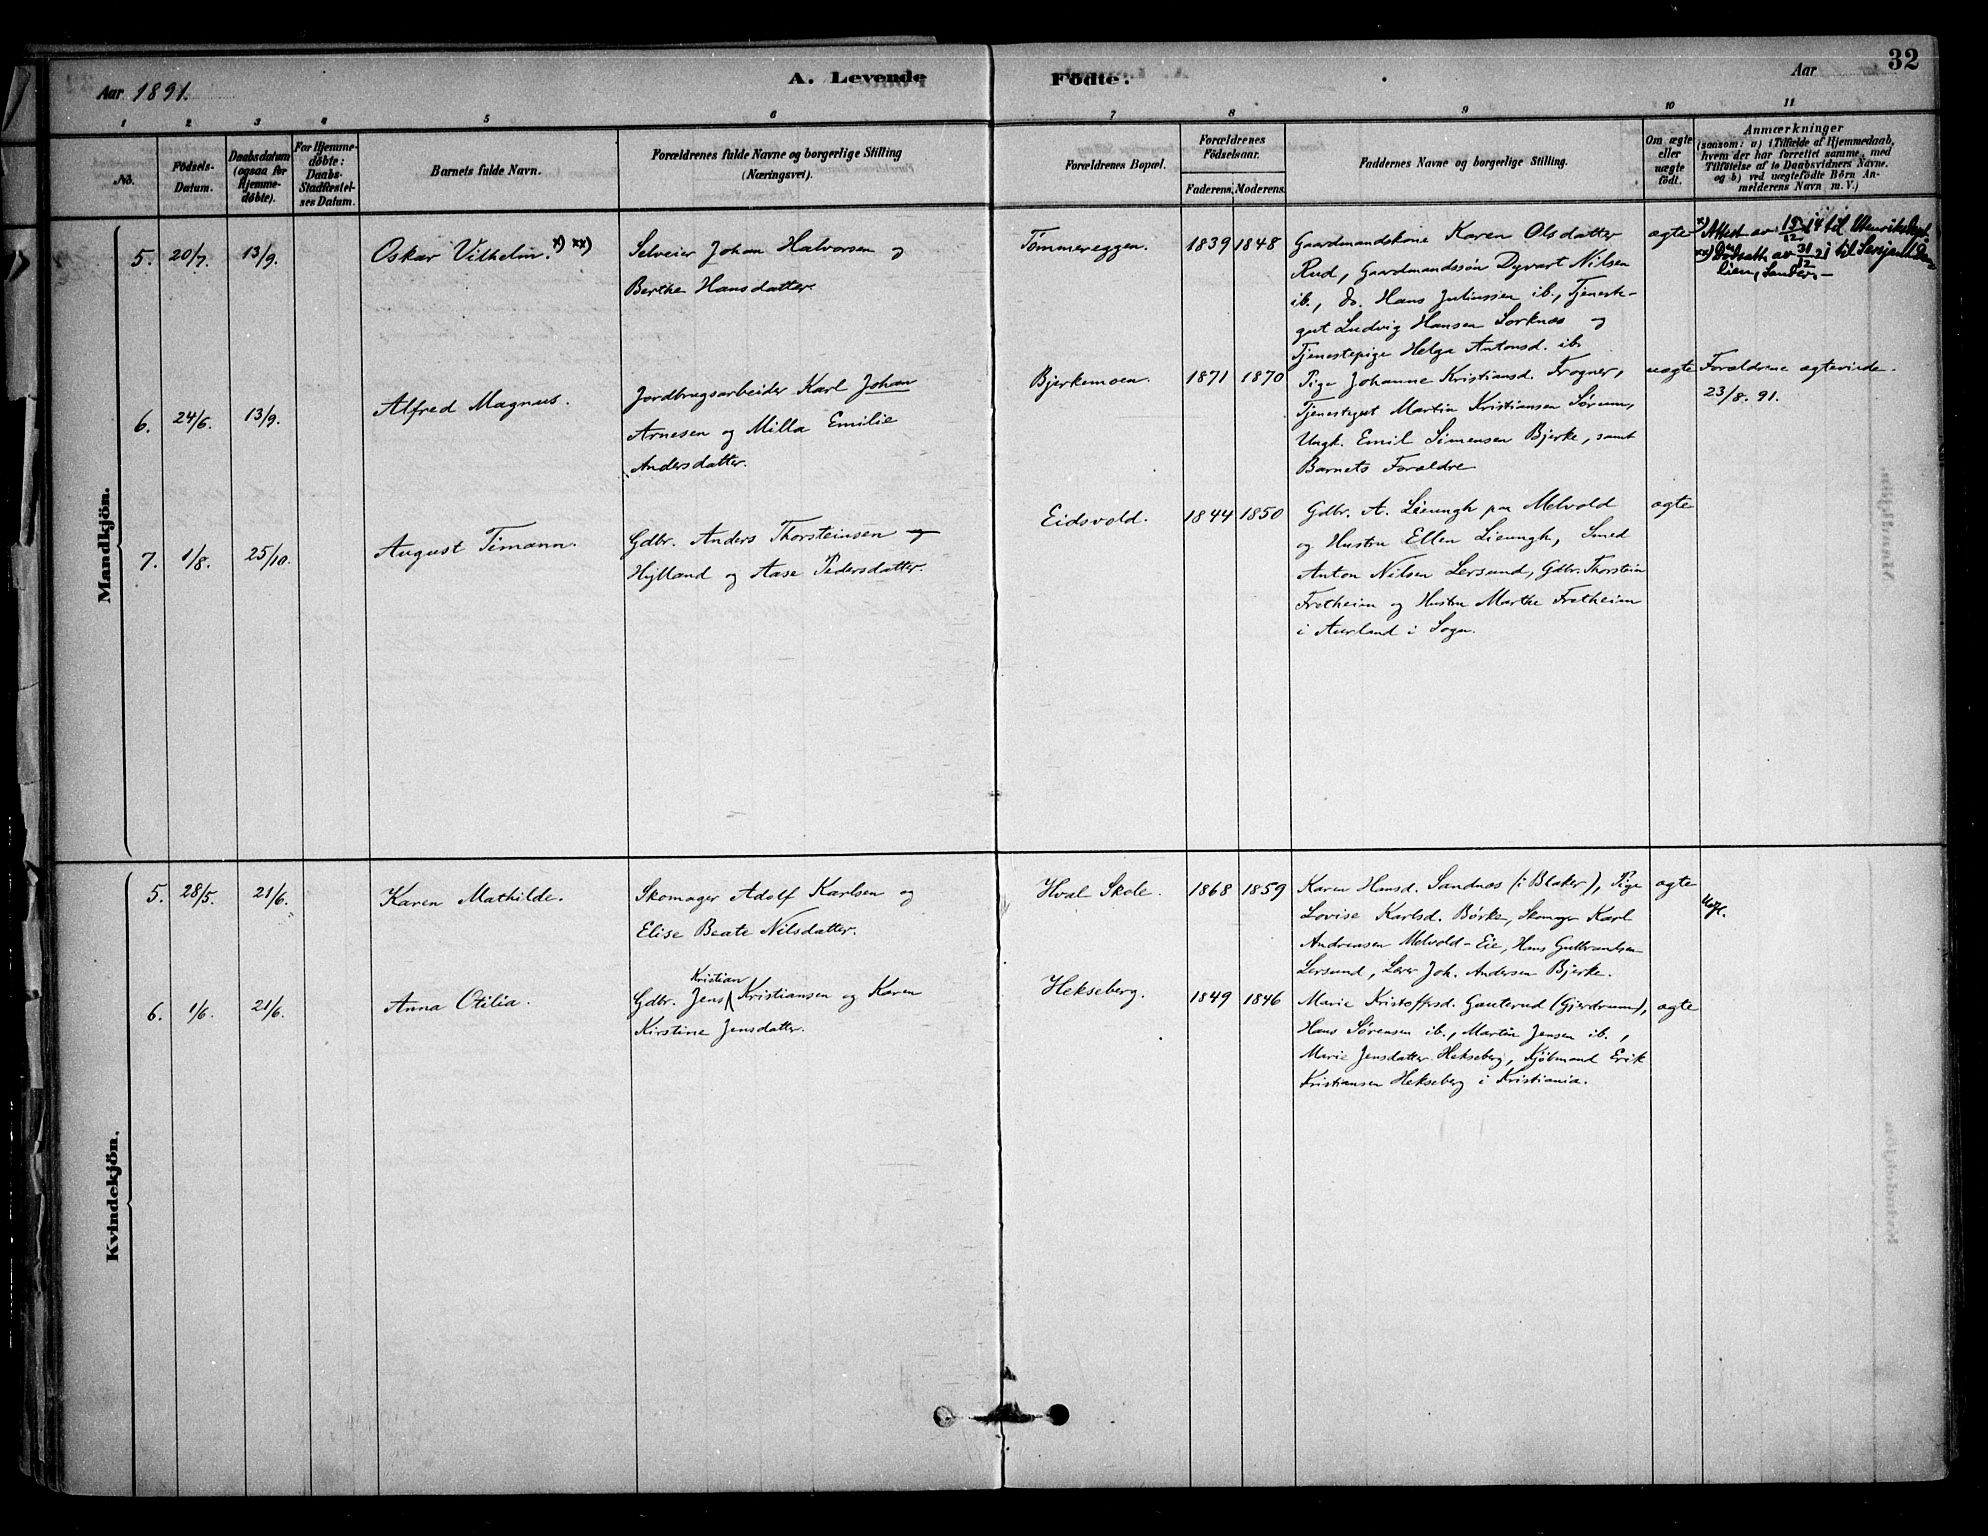 32
A. Levende Födte.
Aar 1891.
Aar
1 2 3 4 5 6 7 8 9 10 11
No.
Födsels-Datum.
Daabsdatum (ogsaa for Hjemme-døbte).
For Hjemme-døbte: Daabs-Stadfæstel-ses Datum.
Barnets fulde Navn.
Forældrenes fulde Navne og borgerlige Stilling (Næringsvei).
Forældrenes Bopæl.
Forældrenes Födselsaar.
Faderens. Moderens.
Faddernes Navne og borgerlige Stilling.
Om ægte eller uægte født.
Anmærkninger
(saasom: a) i Tilfælde af Hjemmedaab,
hvem der har forrettet samme, med
Tilføielse af to Daabsvidners Navne,
og b) ved uægtefödte Börn An-
melderens Navn m. V.)
Mandkjön.
5. 20/7. 13/9. Oskar Vilhelm. x) xx)
Selveier Johan Halvorsen og
Berthe Hansdatter.
Tömmereggen. 1839 1848
Gaardmandskone Karen Olsdatter
Rud, Gaardmandssön Dyvart Nilsen
ib., do. Hans Juliussen ib., Tjeneste-
gut Ludvig Hansen Sorknæs og
Tjenestepige Helga Antonsd. ib.
ægte
x) Attest av 15/12 14 til
xx) av 31/12 21 til
6. 24/6. 13/9. Alfred Magnus.
Jordbrugsarbeider Karl Johan
Arnesen og Milla Emilie
Andersdatter.
Bjerkemoen. 1871 1870
Pige Johanne Kristiansd. Frogner,
Tjenestegut Martin Kristiansen Sørum,
Ungk. Emil Simensen Bjerke, samt
Barnets Forældre
uægte
Forældrene ægteviede
23/8. 91.
7. 1/8. 25/10. August Timann.
Gdbr. Anders Thorsteinsen og
Hylland og Aase Pedersdatter.
Eidsvold. 1844 1850
Gdbr. A. Lieungh paa Melvold
og Hustru Ellen Lieungh, Smed
Anton Nilsen Lersund, Gdbr. Thorstein
Fretheim og Hustru Marthe Fretheim
i Aurland i Sogn.
ægte
Kvindekjön.
5. 28/5. 21/6. Karen Mathilde.
Skomager Adolf Karlsen og
Elise Beate Nilsdatter.
Hval Skole. 1868 1859
Karen Hansd. Sandnæs (i Blaker), Pige
Lovise Karlsd. Börke, Skomager Karl
Andreasen Melvold-Eie, Hans Gulbrandsen
Lersund, Lærer Joh. Andersen Bjerke.
ægte
6. 1/6. 21/6. Anna Otilia.
Kristian
Gdbr. Jens Kristiansen og Karen
Kirstine Jensdatter.
Hekseberg. 1849 1846
Marie Kristoffersd. Gauterud (Gjerdrum),
Hans Sørensen ib., Martin Jensen ib.,
Marie Jensdatter Hekseberg, Kjöbmand Erik
Kristiansen Hekseberg i Kristiania.
ægte